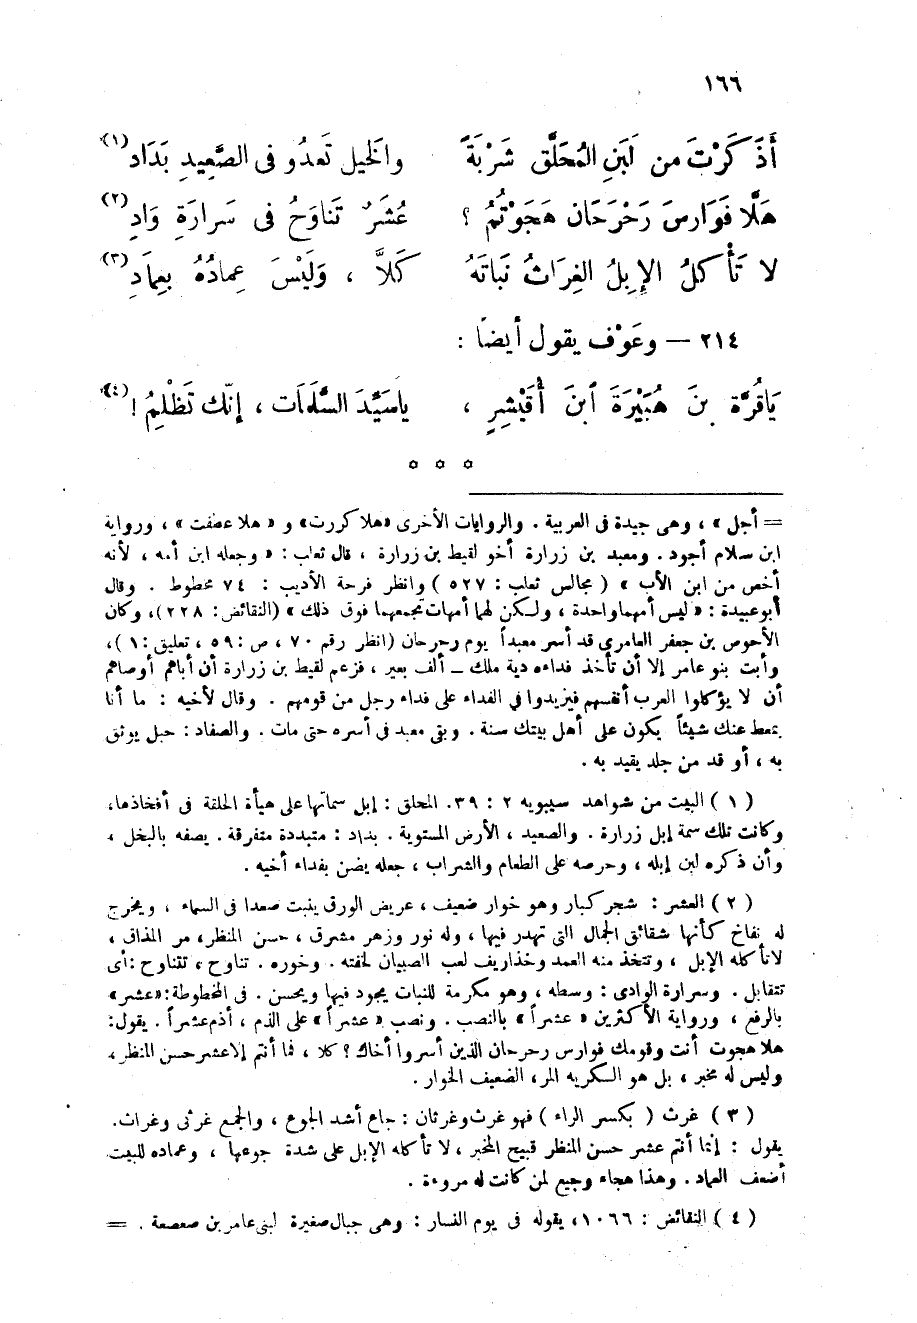 ١٦٦
أَذَكَرْتَ من لَبَنِ المُحَلَّقِ شَرْبَةً والخيل تَعدُو فى الصَّعِيدِ بَدَادِ (١)
هَلَّا فَوَارِسَ رَحْرَحَانَ هَجَوْتُمُ ؟ عُشَرٌ تَنَاوَحُ فى سَرارَةِ وَادِ (٢)
لا تَأْكلُ الإِبِلُ الغِرَاثُ نَبَاتَهُ كَلاَّ ، وَلَيْسَ عِمادُهُ بعِمَادِ (٣)
٢١٤ – وعَوْف يقول أيضًا :
يَا قُرَّةَ بنَ هُبَيْرَةَ ٱبنَ أُقَيْشِرٍ ، ياسَيِّدَ السَّلَمَات ، إنّك تَظْلِمُ ! (٤)
۞ ۞ ۞
= أجل » ، وهى جيدة فى العربية . والروايات الأخرى «هلا كررت» و « هلا عطفت » ، ورواية
ابن سلام أجود . ومعبد بن زرارة أخو لقيط بن زرارة ، قال ثعلب : « وجعله ابن أمه ، لأنه
أخص من ابن الأب » ( مجالس ثعلب : ٥٢٧ ) وانظر فرحة الأديب : ٧٤ مخطوط . وقال
أبو عبيدة : « ليس أمهما واحدة ، ولكن لهما أمهات تجمعهما فوق ذلك » (النقائض: ٢٢٨)، وكان
الأحوص بن جعفر العامرى قد أسر معبداً يوم رحرحان (انظر رقم ٧٠ ، ص : ٥٩ ، تعليق : ١ )،
وأبت بنو عامر إلا أن تأخذ فداءه دية ملك – ألف بعير ، فزعم لقيط بن زرارة أن أباهم أوصاهم
أن لا يؤكلوا العرب أنفسهم فيزيدوا فى الفداء على فداء رجل من قومهم . وقال لأخيه : ما أنا
بمعط عنك شيئاً يكون على أهل بيتك سنة . وبقى معبد فى أسره حتى مات . والصفاد : حبل يوثق
به ، أو قد من جلد يقيد به .
( ١ ) البيت من شواهد سيبويه ٢ : ٣٩. المحلق : إبل سماتها على هيأة الحلقة فى أفخاذها،
وكانت تلك سمة إبل زرارة . والصعيد ، الأرض المستوية . بداد : متبددة متفرقة . يصفه بالبخل ،
وأن ذكره لبن إبله ، وحرصه على الطعام والشراب ، جعله يضن بفداء أخيه .
( ٢ ) العشر : شجر كبار وهو خوار ضعيف ، عريض الورق ينبت صعدا فى السماء ، ويخرج
له نفاخ كأنها شقائق الجمال التى تهدر فيها ، وله نور وزهر مشرق ، حسن المنظر، مر المذاق ،
لا تأكله الإبل ، وتتخذ منه العمد وخذاريف لعب الصبيان لخفته . وخوره . تناوح ، تتناوح : أى
تتقابل . وسرارة الوادى : وسطه ، وهو مكرمة للنبات يجود فيها ويحسن . فى المخطوطة: «عشر»
بالرفع ، ورواية الأكثرين « عشراً » بالنصب . ونصب « عشراً » على الذم ، أذم عشراً . يقول:
هلا هجوت أنت وقومك فوارس رحرحان الذين أسروا أخاك ؟ كلا ، فما أنتم إلا عشر حسن المنظر،
وليس له مخبر ، بل هو الكريه المر، الضعيف الخوار .
( ٣ ) غرث ( بكسر الراء ) فهو غرث وغرثان : جاع أشد الجوع ، والجمع غرثى وغراث.
يقول : إنما أنتم عشر حسن المنظر قبيح المخبر ، لا تأكله الإبل على شدة جوعها ، وعماده للبيت
أضعف العماد . وهذا هجاء وجيع لمن كانت له مروءة .
( ٤ ) النقائض : ١٠٦٦ ، يقوله فى يوم النسار : وهى جبال صغيرة لبنى عامر بن صعصعة . =